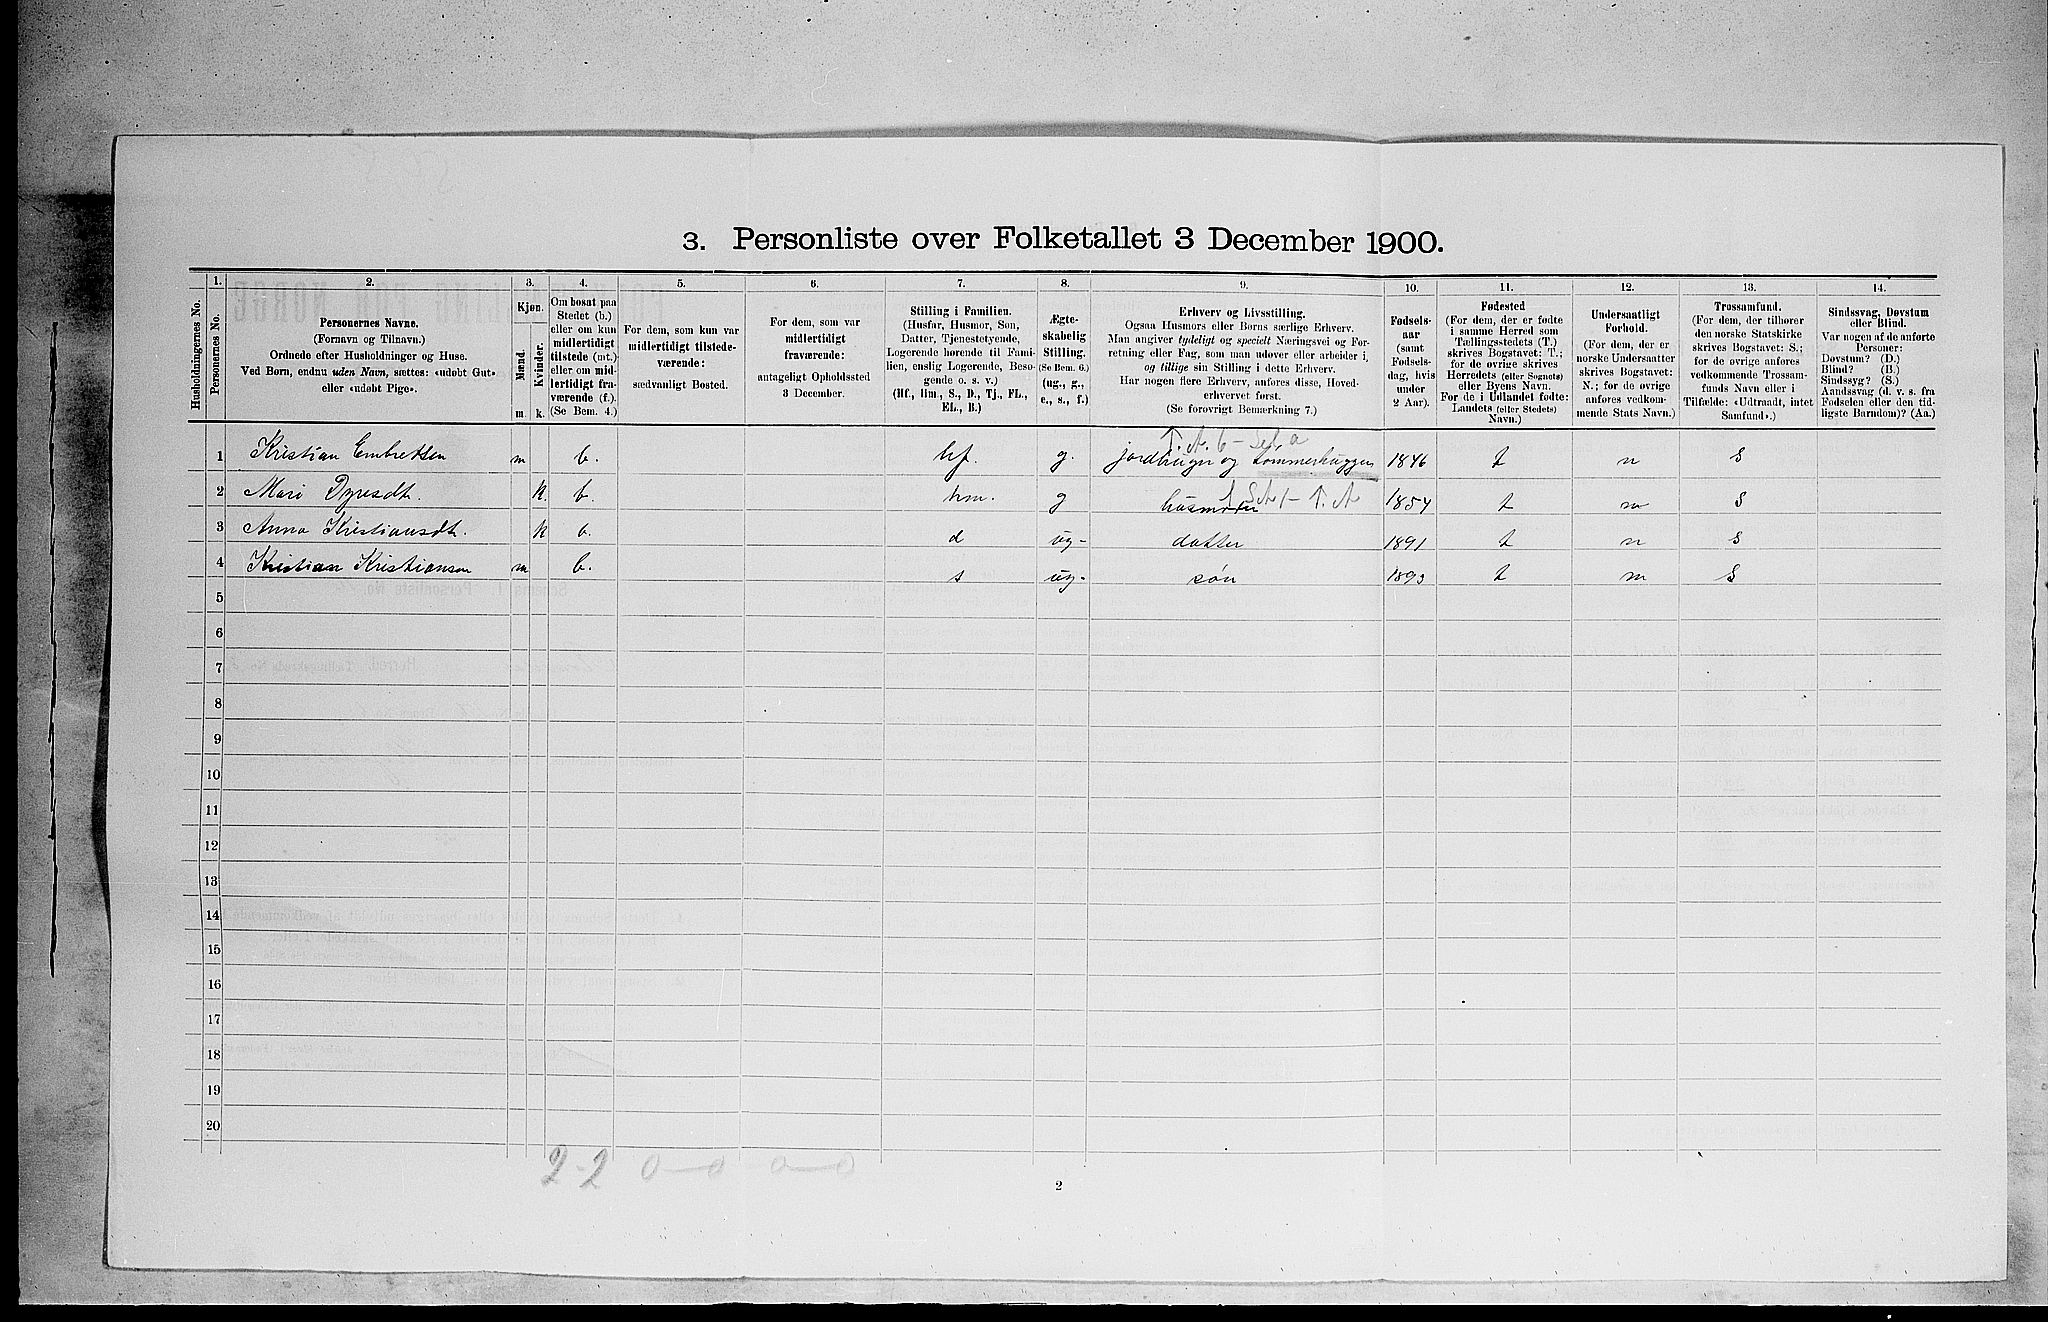 3. Personliste over Folketallet 3 December 1900.
Husholdningernes No.
1.
Personernes No.
2.
Personernes Navne.
(Fornavn og Tilnavn.)
Ordnede efter Husholdninger og Huse.
Ved Børn, endnu uden Navn, sættes: «udøbt Gut»
eller «udøbt Pige».
3.
Kjøn.
Mænd.
m.
Kvinder.
k.
4.
Om bosat paa
Stedet (b.)
eller om kun
midlertidigt
tilstede (mt.)
eller om mid-
lertidigt fra-
værende (f.)
(Se Bem. 4.)
5.
For dem, som kun var
midlertidigt tilstede-
værende:
sædvanligt Bosted.
6.
For dem, som var
midlertidigt
fraværende:
antageligt Opholdssted
3 December.
7.
Stilling i Familien.
(Husfar, Husmor, Søn,
Datter, Tjenestetyende,
Logerende hørende til Fami-
lien, enslig Logerende, Besø-
gende o. s. v.)
(Hf., Hm., S., D., Tj., FL.,
EL., B.)
8.
Ægte-
skabelig
Stilling.
(Se Bem. 6.)
(ug., g.,
e., s., f.)
9.
Erhverv og Livsstilling.
Ogsaa Husmors eller Børns særlige Erhverv.
Man angiver tydeligt og specielt Næringsvei og For-
retning eller Fag, som man udøver eller arbeider i,
og tillige sin Stilling i dette Erhverv.
Har nogen flere Erhverv, anføres disse, Hoved-
erhvervet først.
(Se forøvrigt Bemærkning 7.)
10.
Fødsels-
aar
(samt
Fødsels-
dag, hvis
under
2 Aar).
11.
Fødested
(For dem, der er fødte
i samme Herred som
Tællingsstedets (T.)
skrives Bogstavet: T.;
for de øvrige skrives
Herredets (eller Sognets)
eller Byens Navn.
For de i Udlandet fødte:
Landets (eller Stedets)
Navn.)
12.
Undersaatligt
Forhold.
(For dem, der er
norske Undersaatter
skrives Bogstavet:
N.; for de øvrige
anføres vedkom-
mende Stats Navn.)
13.
Trossamfund.
(For dem, der tilhører
den norske Statskirke
skrives Bogstavet: S.;
for de øvrige anføres
vedkommende Trossam-
funds Navn eller i
Tilfælde: «Udtraadt, intet
Samfund».)
14.
Sindssvag, Døvstum
eller Blind.
Var nogen af de anførte
Personer:
Døvstum? (D.)
Blind? (B.)
Sindssyg? (S.)
Aandssvag (d. v. s. fra
Fødselen eller den tid-
ligste Barndom)? (Aa.)
1 Kristian Embretsen m b. hf. g. jordbruger og tømmerhugger 1846 t n S
2 Mari Dyresdt. k. b. hm. g husmoder 1854 t n S
3 Anna Kristiansdt. k b. d ug- datter 1891 t n S
4 Kristian Kristiansen m b. s ug- søn 1893 t n S
5
6
7
8
9
10
11
12
13
14
15
16
17
18
19
20
2-2 0-0 0-0
2